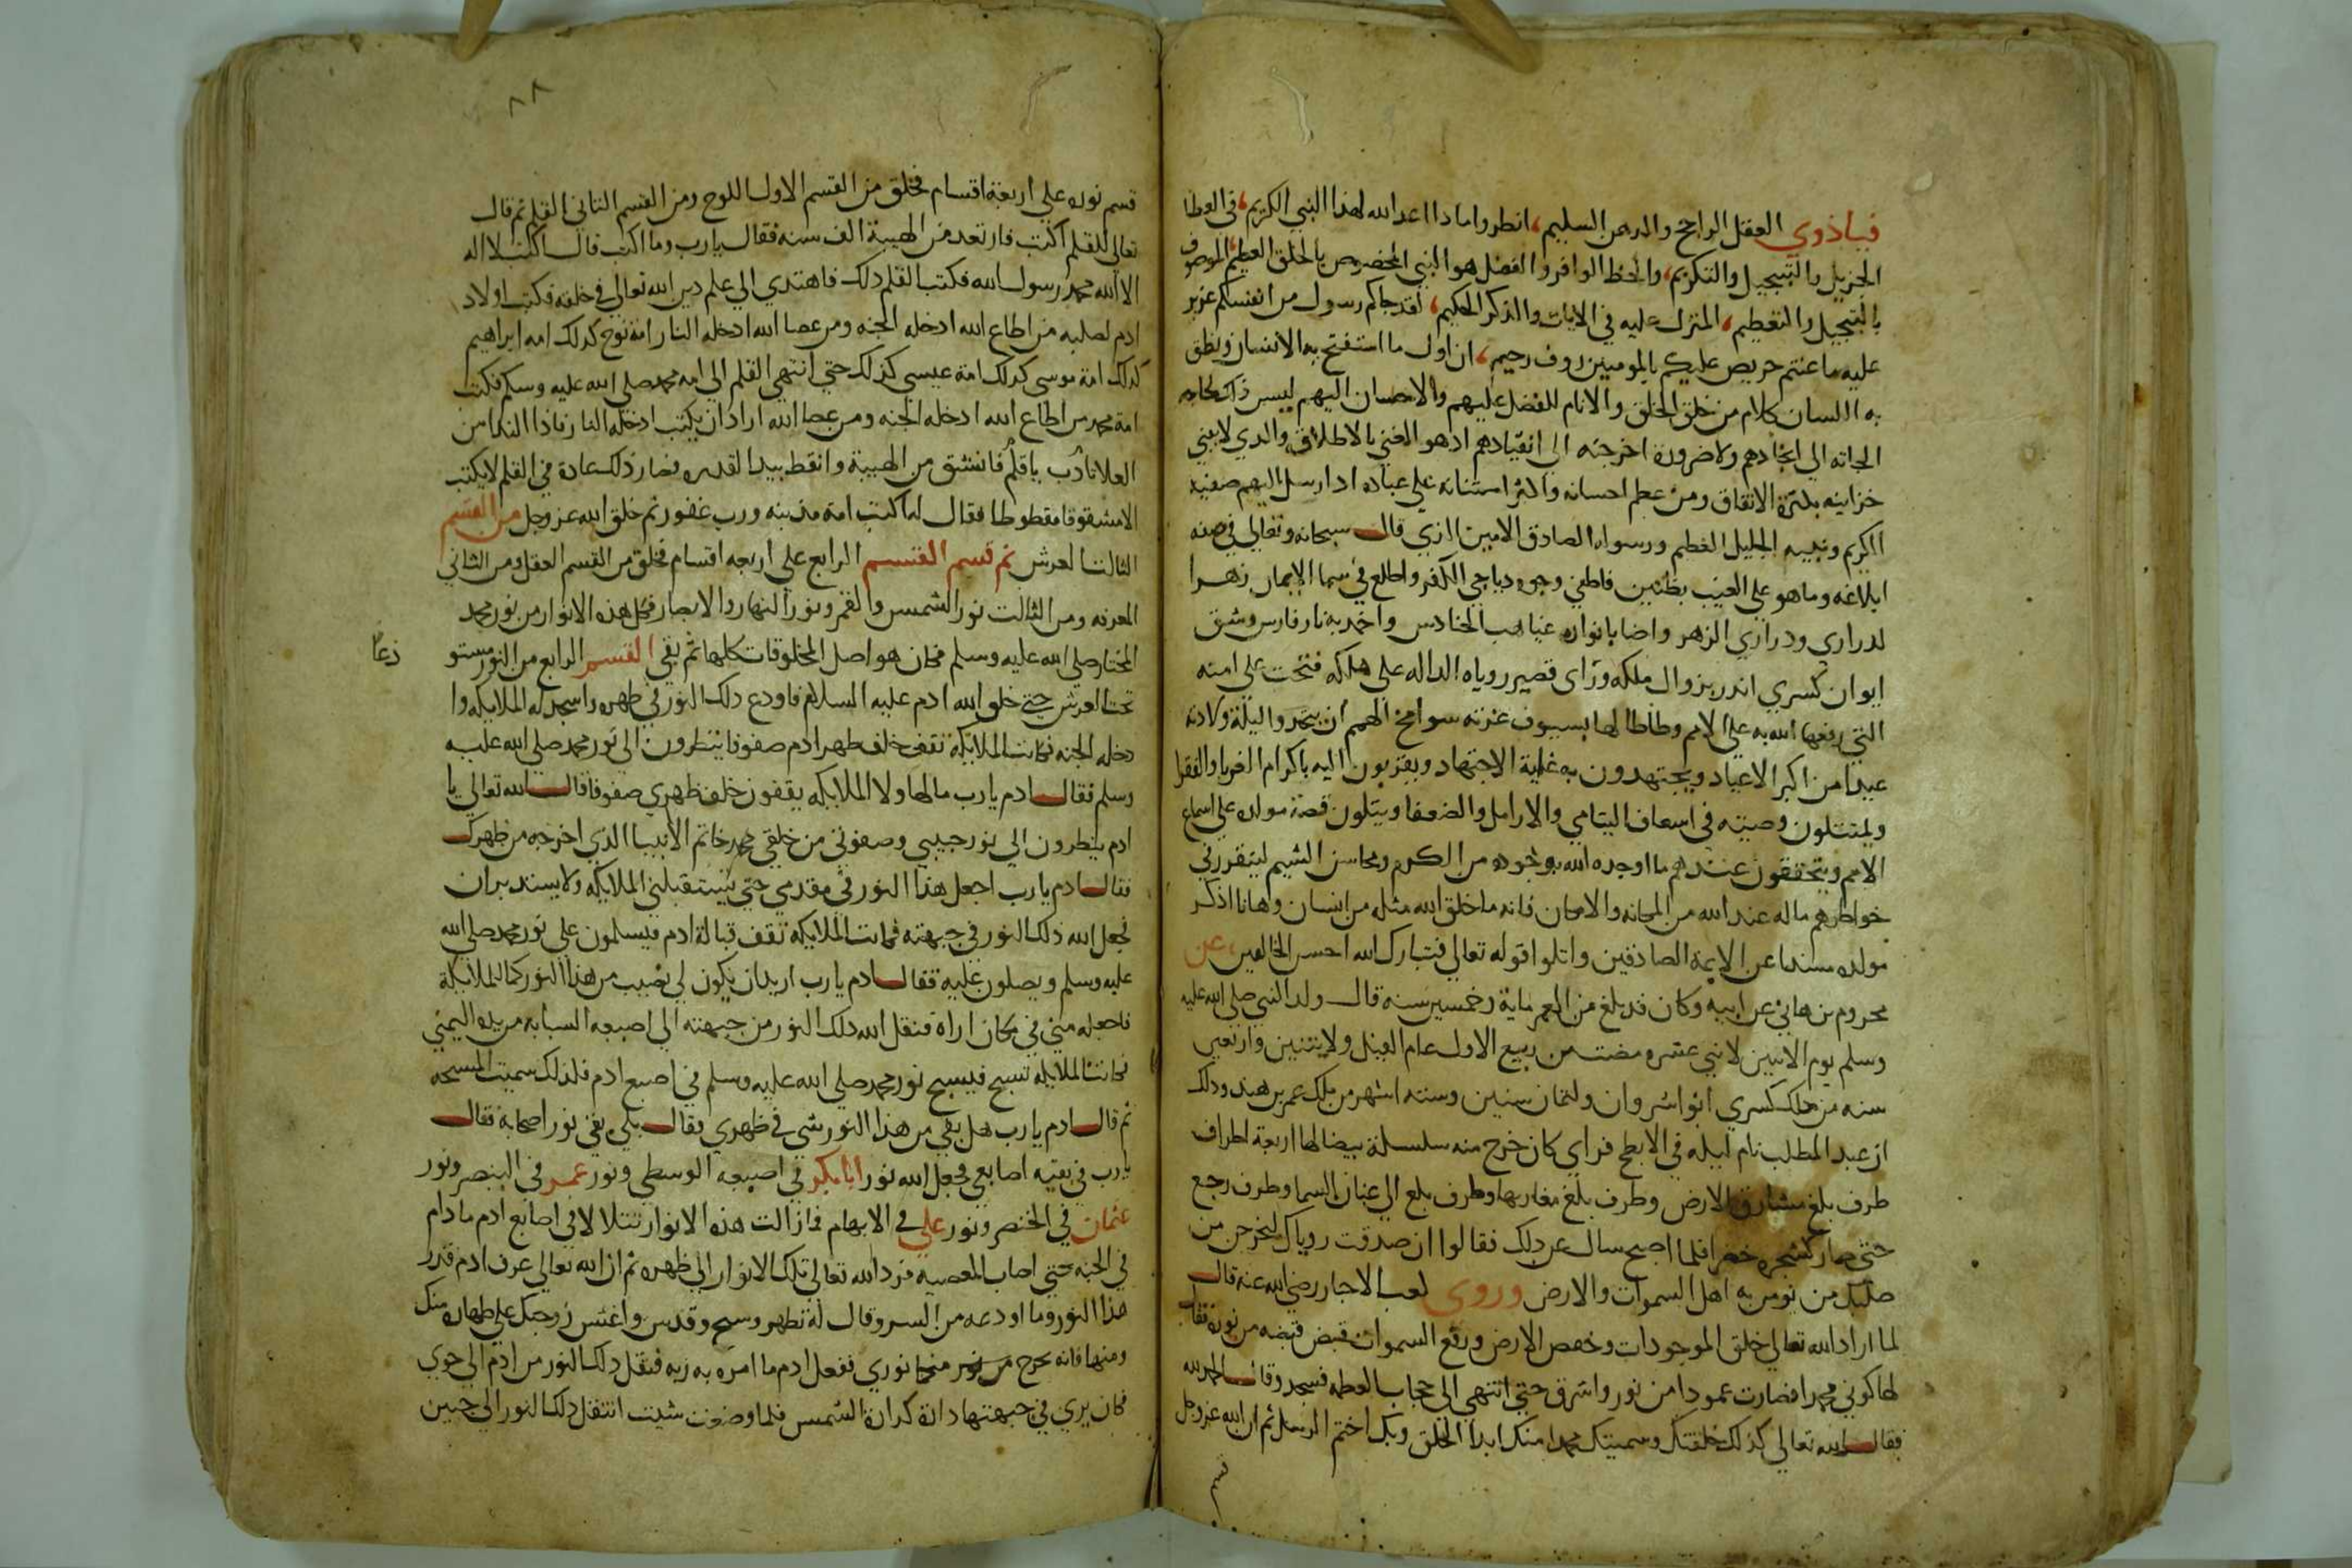 فياذوي العقل الراجح والذهن السليم، انظروا ماذا اعد الله لهذا النبي الكريم، من العطا
الجزيل والتبجيل والتكريم، والحظ الوافر والفضل هو النبي المخصوص بالخلق العظيم الموصوف
بالتبجيل والتعظيم، المنزل عليه في الايات والذكر الحكيم، لقد جاكم رسول من انفسكم عزيز
عليه ما عنتم حريص عليكم بالمومنين روف رحيم، ان اول ما استفتح به الانسان ونطق
به اللسان كلام من خلق الخلق والانام للفضل عليهم والاحسان اليهم ليس ذلك لحاجه
الجاته الى ايجادهم ولا ضرورة اخرجته الى انقيادهم اذ هو الغني بالاطلاق والذي لا يفني
خزاينه بكثرة الانفاق ومن عظم احسانه واكثر امتنانه علي عباده اذ ارسل اليهم صفيه
الكريم ونبيه الجليل العظيم ورسوله الصادق الامين الذي قال سبحانه وتعالي في صفه
ابلاغه وما هو علي الغيب بظنين فاطفي وجوه دياجي الكفر واطلع في سما الايمان زهرا
لدراري ودراري الزهر واضا بانواره غياهب الحنادس واخمد به نار فارس وشق
ايوان كسري انذر بزوال ملكه وراى قصير روياه الداله على هلكه فتحت على امته
التي رفعها الله به علي الامم وطاطا لها بسيوف عزته سوامخ الهمم ان يتخذوا ليلة ولادته
عيدا من اكبر الاعياد ويجتهدون به غاية الاجتهاد ويتقربون اليه باكرام الغربا والفقرا
ويمتثلون وصيته في اسعاف اليتامي والارامل والضعفا ويتلون قصة مولده علي اسماع
الامم ويتحققون عندهم ما اوجده الله بوجوده من الكرم ومحاسن الشيم ليتقرر في
خواطرهم ما له عند الله من المكانه والامكان فانه ما خلق الله مثله من انسان وها انا اذكر
مولده مسندا عن الايمة الصادقين واتلوا قوله تعالي فتبارك الله احسن الخالقين، عن
مخروم بن هاني عن ابيه وكان قد بلغ من العمر ماية وخمسين سنه قال ولد النبي صلي الله عليه
وسلم يوم الاثنين لاثني عشره مضت من ربيع الاول عام الفيل ولاثنين واربعين
سنه من ملك كسري انوا شروان ولثمان سنين وستة اشهر من ملك عمر بن هند وذلك
ان عبد المطلب نام ليله في الابطح فراي كان خرج منه سلسلة بيضا لها اربعة اطراف
طرف بلغ مشارق الارض وطرف بلغ مغاربها وطرف بلغ الي عنان السما وطرف رجع
حتى صار كشجره خضرا فلما اصبح سال عن ذلك فقالوا ان صدقت روياك ليخرجن من
صلبك من نومن به اهل السموات والارض وروي كعب الاحبار رضي الله عنه قال
لما اراد الله تعالى خلق الموجودات وخفض الارض ورفع السموات قبض قبضه من نوره فقال
لها كوني محمدا فصارت عمودا من نور واشرق حتى انتهي الى حجاب العظمه فسجد وقال الحمد لله
فقال الله تعالى كذلك خلقتك وسميتك محمدا منك ابدا الخلق وبك اختم الرسل ثم ان الله عز وجل
قسم
٨٨
قسم نوره علي اربعة اقسام فخلق من القسم الاول اللوح ومن القسم الثاني القلم ثم قال
تعالي للقلم اكتب فارتعد من الهيبة الف سنه فقال يا رب وما اكتب قال اكتب لا اله
الا الله محمد رسول الله فكتب القلم ذلك فاهتدي الي علم دين الله تعالى في خلقه فكتب اولاد
ادم لصلبه من اطاع الله ادخله الجنه ومن عصا الله ادخله النار امة نوح كذلك امه ابراهيم
كذلك امة موسى كذلك امة عيسى كذلك حتي انتهي القلم الي امه محمد صلي الله عليه وسلم فكتب
امة محمد من اطاع الله ادخله الجنه ومن عصا الله اراد ان يكتب ادخله النار فاذا النداء من
العلا تادب يا قلم فانشق من الهيبة وانقط بيد القدره فصار ذلك عادة في القلم لا يكتب
الا مشقوقا مقطوطا فقال له اكتب امة مذنبه ورب غفور ثم خلق الله عز وجل من القسم
الثالث العرش ثم قسم القسم الرابع علي اربعه اقسام فخلق من القسم العقل ومن الثاني
المعرفه ومن الثالث نور الشمس والقمر ونور النهار والابصار فكل هذه الانوار من نور محمد
المختار صلي الله عليه وسلم فكان هو اصل المخلوقات كلها ثم بقي القسم الرابع من النور مستو
دعا
تحت العرش حتي خلق الله ادم عليه السلام فاودع ذلك النور في ظهره واسجد له الملايكه وا
دخله الجنه فكانت الملايكة تقف خلف ظهر ادم صفوفا ينظرون الي نور محمد صلي الله عليه
وسلم فقال ادم يا رب ما لهاولا الملايكه يقفون خلف ظهري صفوفا قال الله تعالي يا
ادم ينظرون الي نور حبيبي وصفوتي من خلقي محمد خاتم الانبيا الذي اخرجه من ظهرك
فقال ادم يا رب اجعل هذا النور في مقدمي حتي تستقبلني الملايكه ولا يستدبران
فجعل الله ذلك النور في جبهته فكانت الملايكه تقف قبالة ادم فيسلمون علي نور محمد صلي الله
عليه وسلم ويصلون عليه فقال ادم يا رب اريد ان يكون لي نصيب من هذا النور كما للملايكة
فاجعله مني في مكان اراه فنقل الله ذلك النور من جبهته الي اصبعه السبابه من يده اليمني
فكانت الملايكه تسبح فيسبح نور محمد صلي الله عليه وسلم في اصبع ادم فلذلك سميت المسبحه
ثم قال ادم يا رب هل بقي من هذا النور شي في ظهري فقال بلي بقي نور اصحابه فقال
يا رب في بقيه اصابعي فجعل الله نور ابا بكر في اصبعه الوسطى ونور عمر في البنصر ونور
عثمان في الخنصر ونور علي في الابهام فما زالت هذه الانوار تتلا لا في اصابع ادم ما دام
في الجنه حتي اصاب المعصيه فرد الله تعالى تلك الانوار الي ظهره ثم ان الله تعالى عرف ادم قدر
هذا النور وما اودعه من السر وقال له تطهر وسبح وقدس واغش زوجتك علي طهاره منك
ومنها فانه يخرج منها نوري ففعل ادم ما امره به ربه فنقل ذلك النور من ادم الي حوي
فكان يري في جبهتها دارة كدارة الشمس فلما وضعت شيت انتقل ذلك النور الي جبين